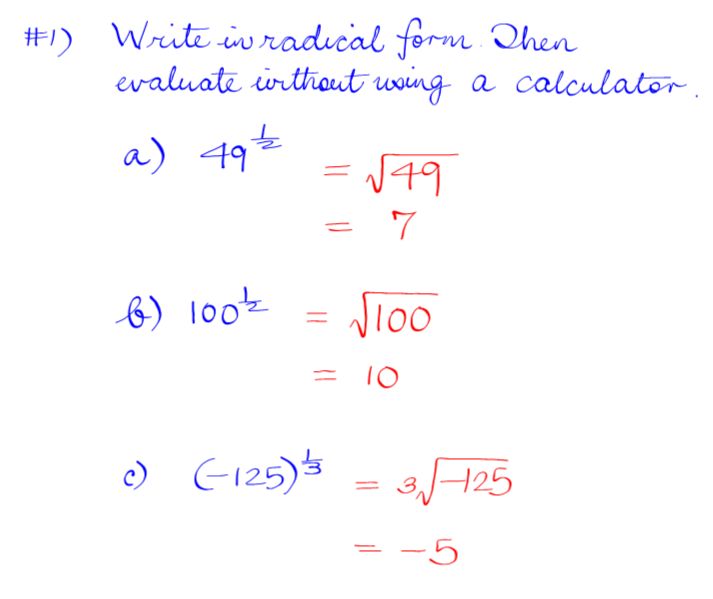 #1) Write in radical form. Then
evaluate without using a calculator.
a) 49^(1/2) = √49
= 7
b) 100^(1/2) = √100
= 10
c) (-125)^(1/3) = ³√-125
= -5